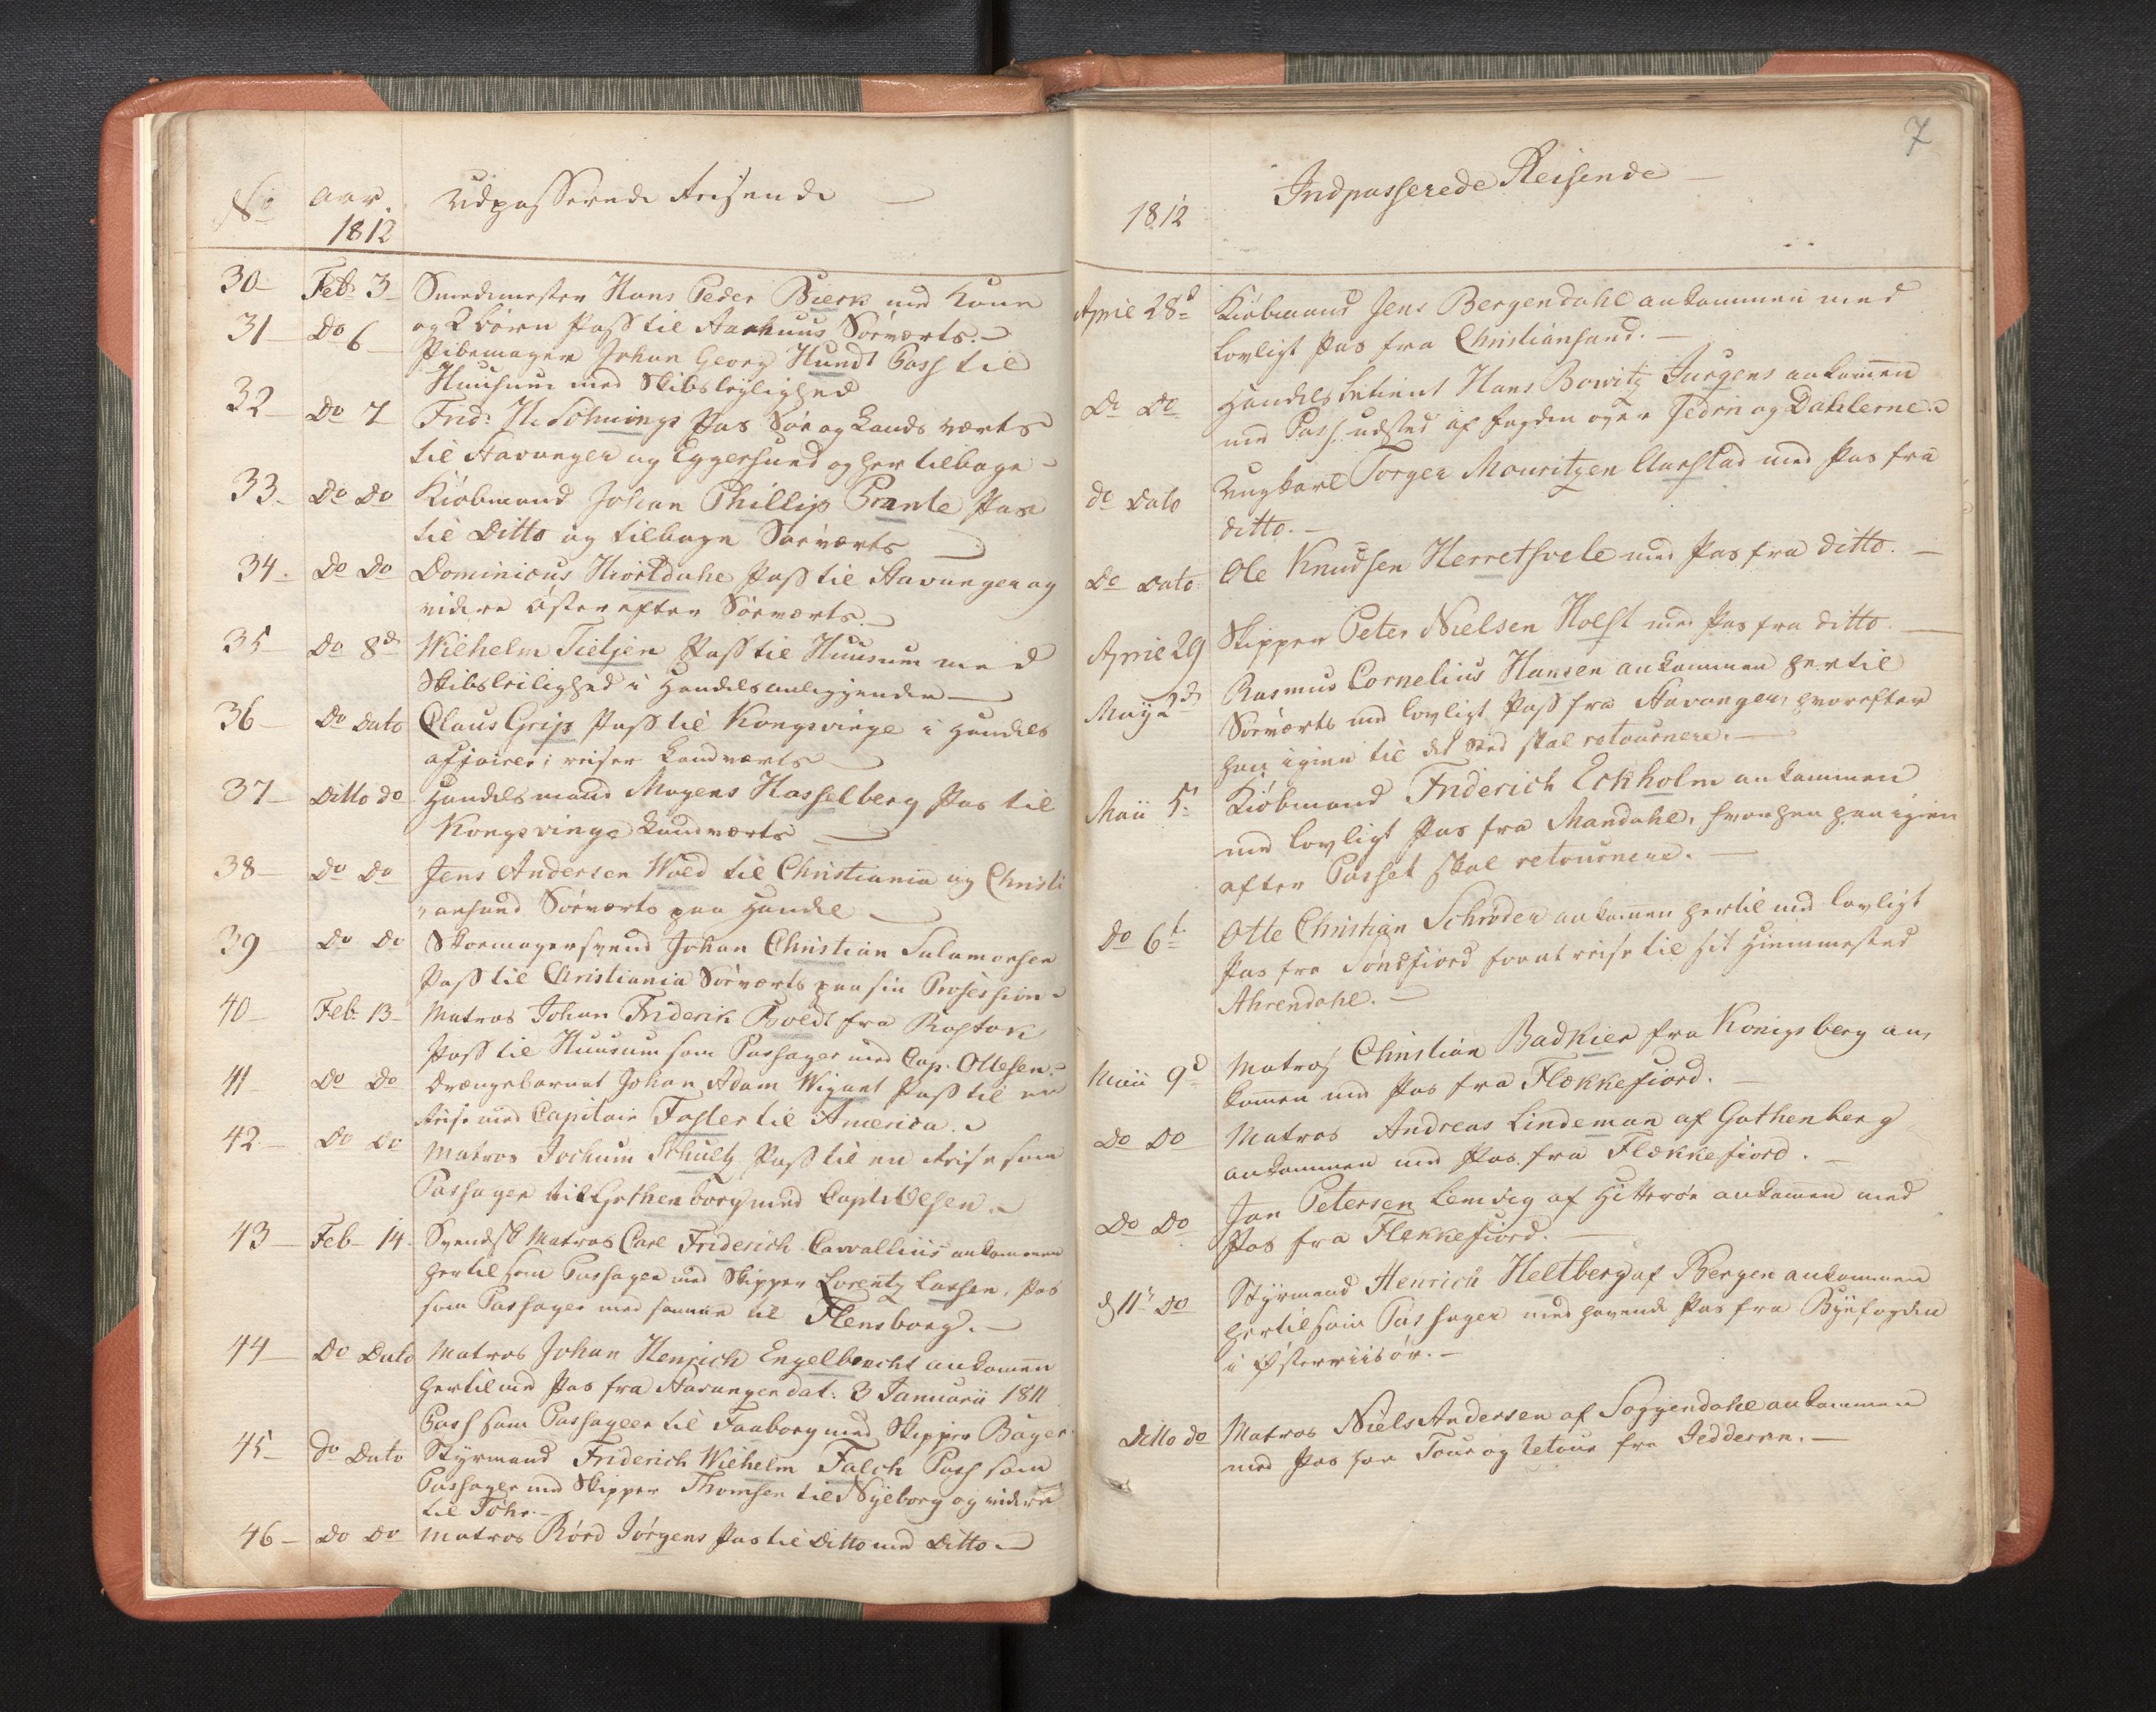 No Aar Udpasserede Reisende
1812
30 Feb. 3 Smedemester Hans Peder Bierk med Kone
og 2 børn Pass til Aarhuus Søeværts.
31 Do 6 Pibemager Johan Georg Hundt Pass til
Huusum med Skibsleylighed
32 Do 7 Frid: H. Schwings Pas Søe og Lands værts
til Stavanger og Eggersund og her tilbage
33 Do Do Kiöbmand Johan Phillip Brante Pas
til Ditto og tilbage Søeværts
34. Do Do Dominicus Hiortdahl Pass til Stavanger og
videre Öster efter Søeværts.
35 Do 8d Wilhelm Tietjen Pass til Huusum med
Skibsleilighed i Handels anliggender
36 Do Dato Claus Grip Pass til Kongsvinge i Handels
affairer; reiser Landværts
37 Ditto do Handelsmand Mogens Hasselberg Pas til
Kongsvinge Landværts
38 Do Do Jens Andersen Wold til Christiania og Christi
ansund Søeværts paa Handel
39 Do Do Skoemagersvend Johan Christian Salamonsen
Pass til Christiania Søeværts paa sin Profession
40 Feb. 13 Matros Johan Friderik Boldt fra Rostok
Pass til Huusum som Passager med Cap. Ottesen.
41 Do Do Drængebarnet Johan Adam Wigant Pass til en
Reise med Capitain Foster til America.
42. Do Do Matros Jochum Schultz Pass til en Reise som
Passager til Gothenborg med Capt. Olsen.
43 Feb 14. Svendsk Matros Carl Friderich Cavallius ankommen
hertil som Passager med Skipper Lorentz Lassen, Pas
som Passager med samme til Flensborg.
44 Do Dato Matros Johan Henrich Engelbrecht ankommen
hertil med Pas fra Stavanger dat: 3 Januarii 1811
Pass som Passageer til Faaborg med Skipper Bager
45 Do Dato Styrmand Friderich Wilhelm Falch Pass som
Passager med Skipper Thomsen til Nyeborg og videre
til Föhr.
46 Do Do Matros Rörd Jörgens Pas til Ditto med Ditto
7
Indpasserede Reisende
1812
Aprie 28d Kiöbmand Jens Bergendahl ankommen med
lovligt Pas fra Christiansand.
Do Do Handels betient Hans Bowitz Jurgens ankommen
med Pass udsted af Fogden over Jedern og Dahlerne.
do Dato Ungkarl Torger Mouritzen Aarstad med Pas fra
ditto.
Do Dato Ole Knudsen Herretsvele med Pas fra ditto.
Aprie 29 Skipper Peter Nielsen Holst med Pas fra ditto
May 2d Rasmus Cornelius Hansen ankommen hertil
Søeværts med lovligt Pass fra Stavanger, hvorefter
han igien til det Sted skal retournere.
Maii 5. Kiöbmand Friderich Eckholm ankommen
med lovligt Pas fra Mandahl, hvorhen han igien
efter Passet skal retournere.
Do 6t. Otte Christian Schrøder ankommen hertil med lovligt
Pas fra Söndfiord for at reise til sit Hiemmested
Ahrendahl.
Maii 9d Matros Christian Badkier fra Konigsberg an,
kommen med Pas fra Flekkefiord.
Do Do Matros Andreas Lindeman af Gothenberg
ankommen med Pas fra Flekkefiord.
Do Do Jan Petersen Lemvig af Hitterøe ankommen med
Pas fra Flekkefiord.
d 11t Do Styrmand Henrich Heltberg af Bergen ankommen
hertil som Passager medhavende Pas fra Byefogden
i Østerriisör.
Ditto do Matros Niels Andersen af Soggendahl ankommen
med Pas for Tour og Retour fra Jedderen.